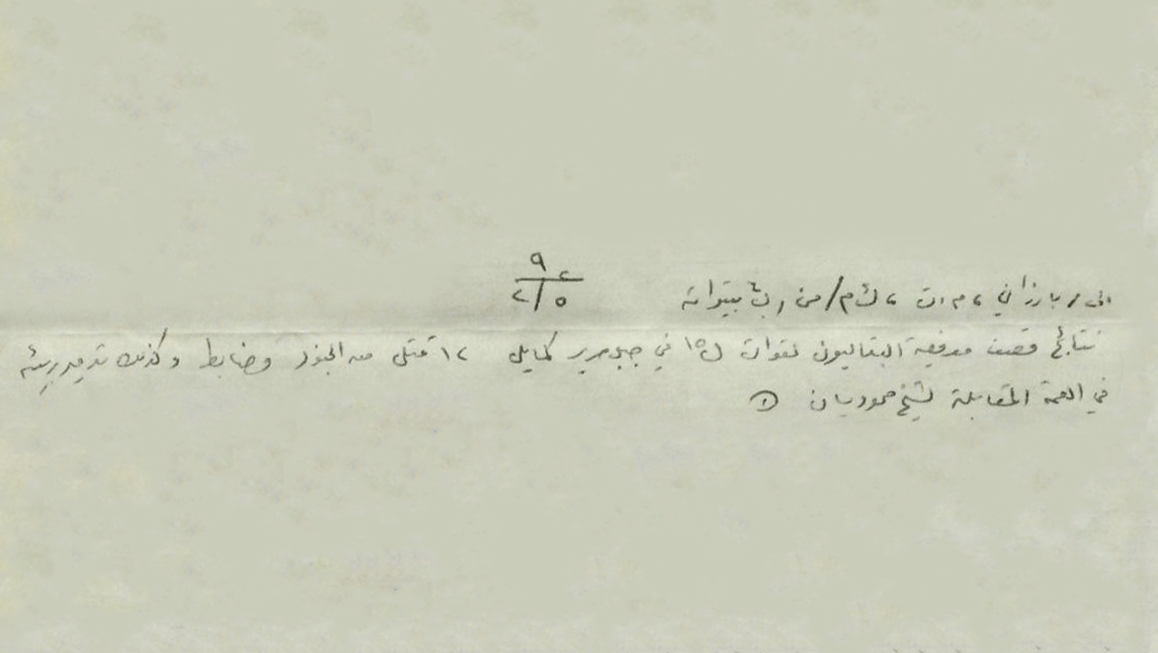 الى / بارزاني ، م.ت ، ك م / من ر ث بيتواته ٩ / ٢/٥
نتائج قصف مدفعية البتاليون لقوات ل١٥ في جبل حرير كمايلي ١٢ قتلى من الجنود وضابط وكذلك تدمير ربيئة
في القمة المقابلة لشيخ محموديان